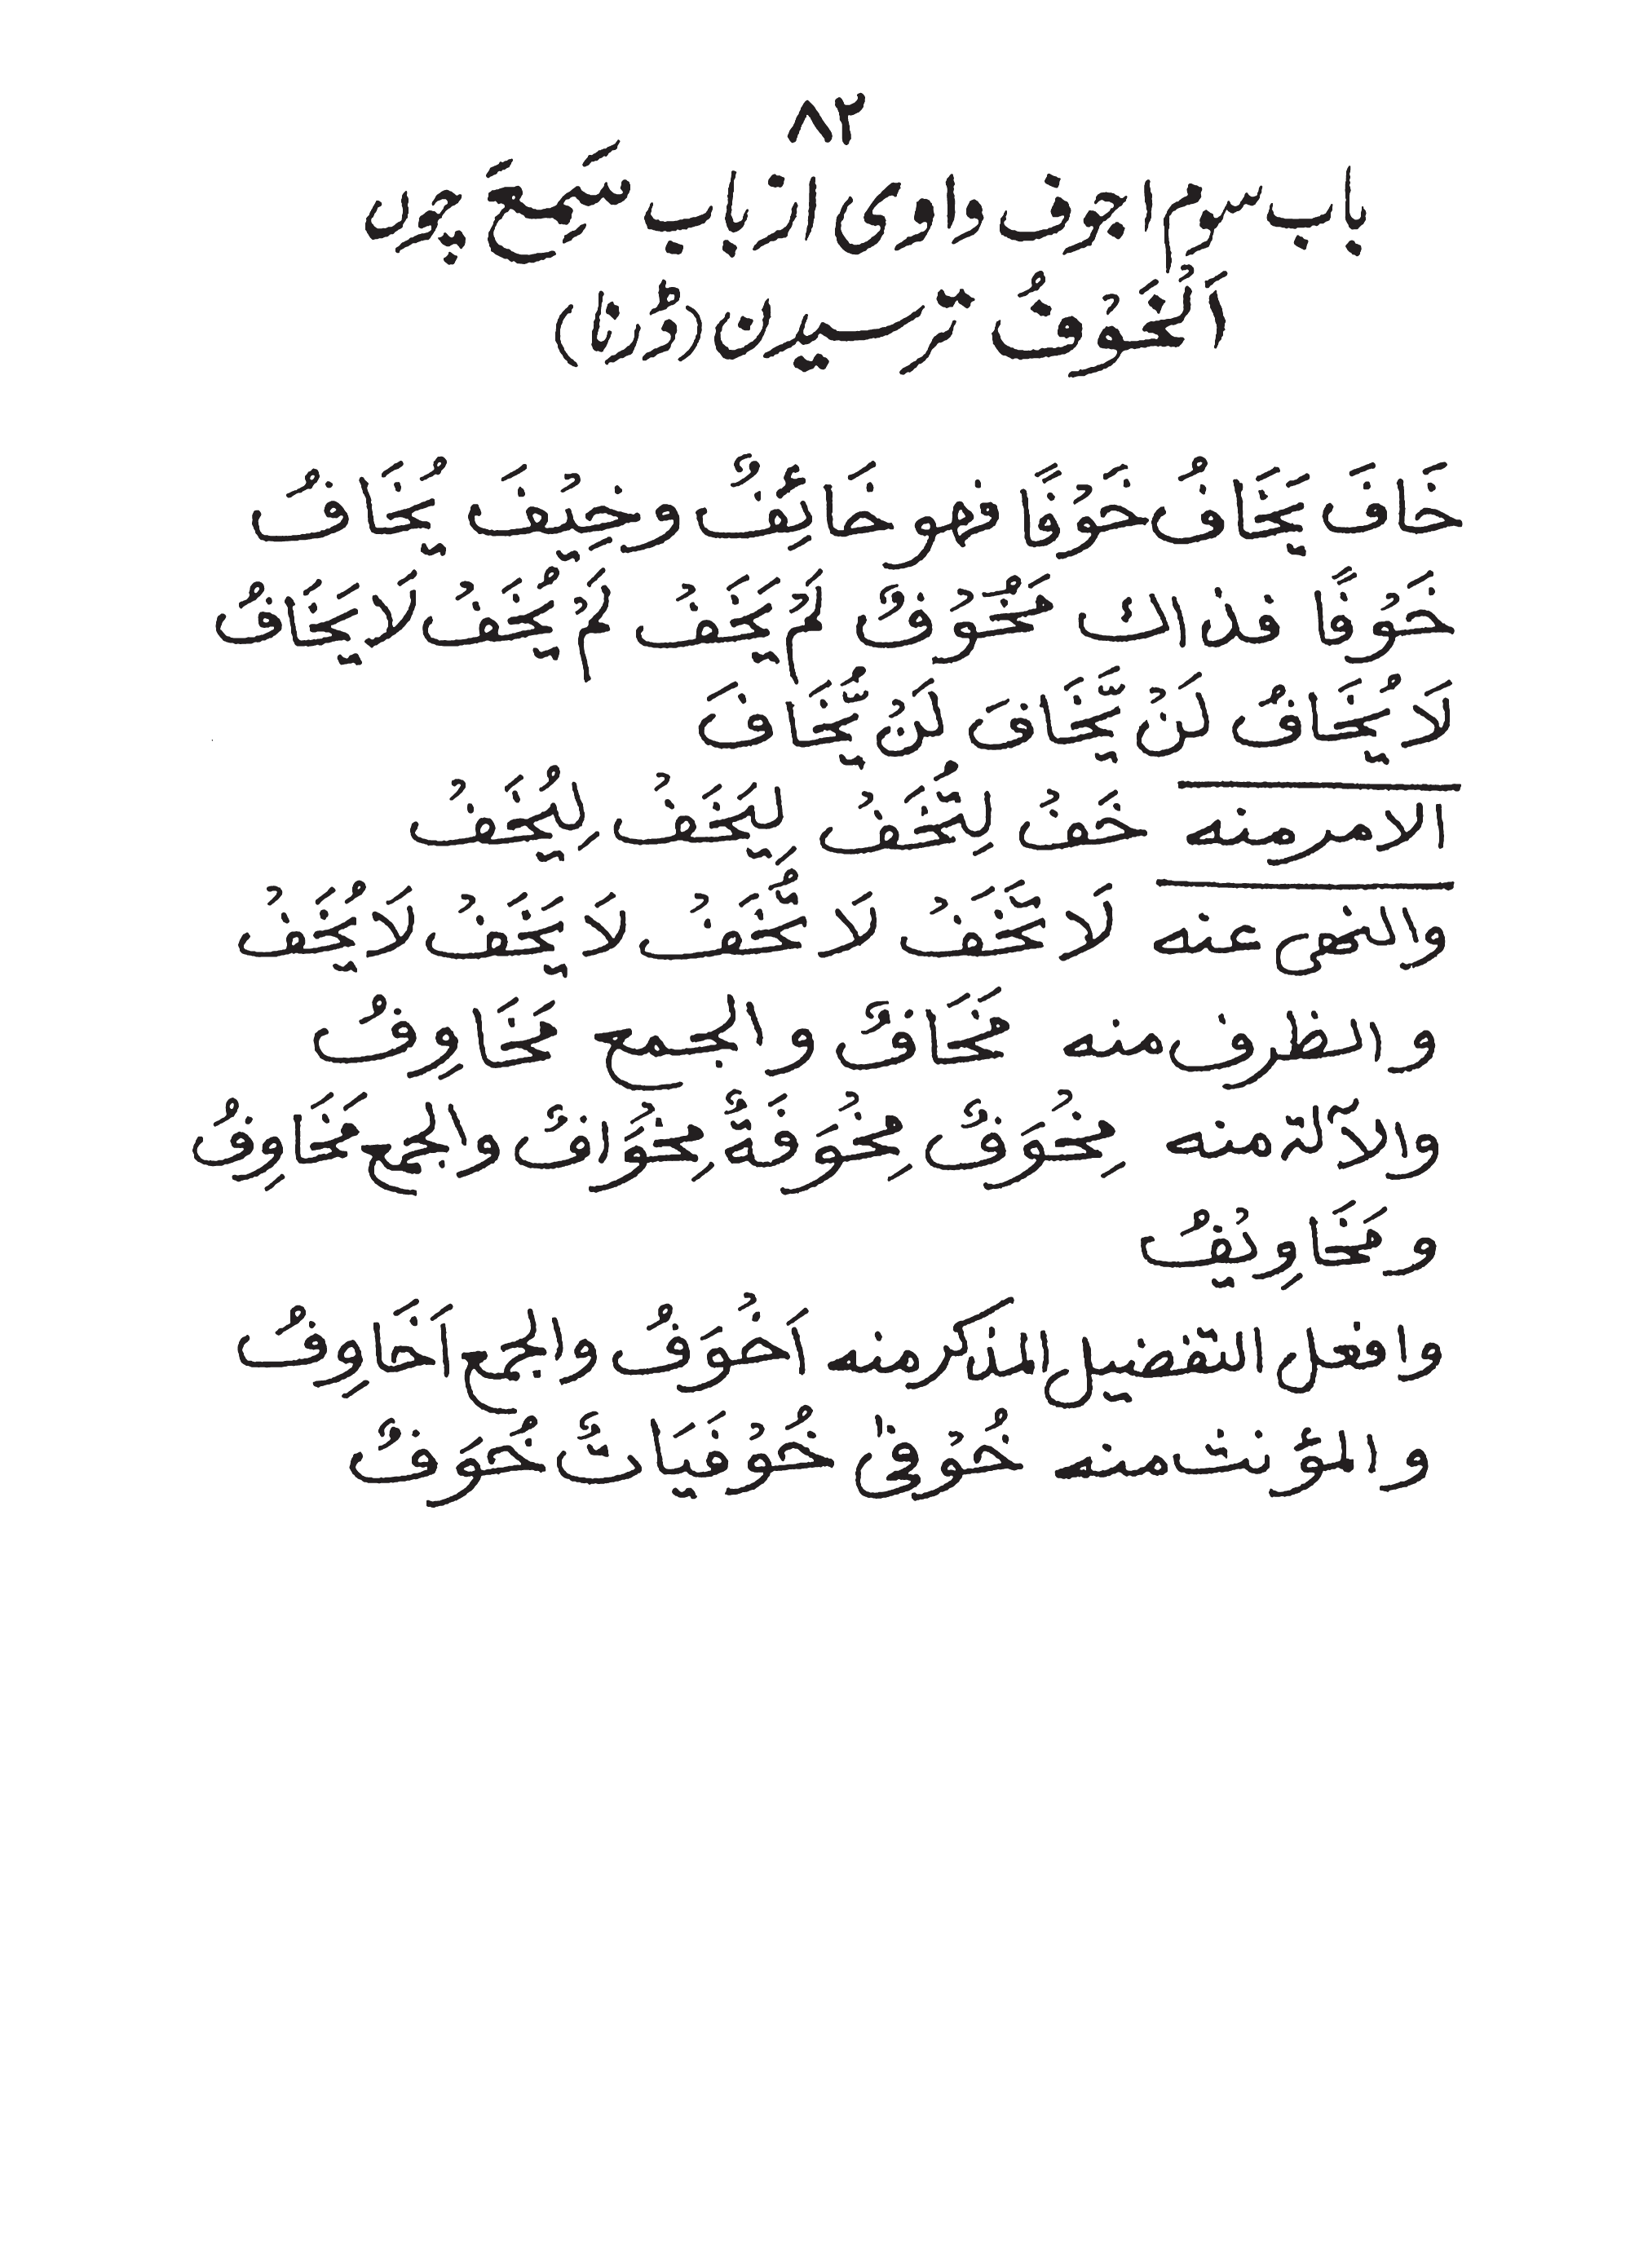 ۸۲
باب سوم اجوف واوی از باب سَمِعَ چوں
اَلْخَوْفُ ترسیدن (ڈرنا)
خَافَ يَخَافُ خَوْفًا فهو خَائِفٌ و خِيْفَ يُخَافُ
خَوْفًا فذاك مَخُوْفٌ لَمْ يَخَفْ لَمْ يُخَفْ لَا يَخَافُ
لَا يُخَافُ لَنْ يَّخَافَ لَنْ يُّخَافَ
الامر منه خَفْ لِتُخَفْ لِيَخَفْ لِيُخَفْ
والنهى عنه لَا تَخَفْ لَا تُخَفْ لَا يَخَفْ لَا يُخَفْ
والظرف منه مَخَافٌ والجمع مَخَاوِفُ
والآلة منه مِخْوَفٌ مِخْوَفَةٌ مِخْوَافٌ والجمع مَخَاوِفُ
و مَخَاوِيْفُ
وافعل التفضيل المذكر منه اَخْوَفُ والجمع اَخَاوِفُ
والمؤنث منه خُوْفٰى خُوْفَيَاتٌ خُوَفٌ